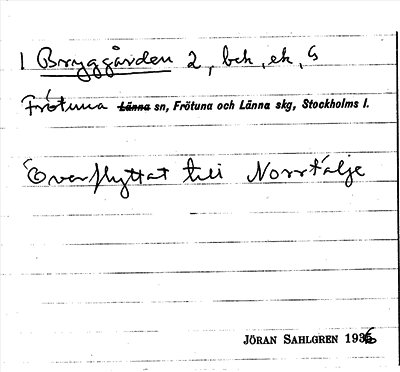 1 Bryggården 2, bek, ek, G
Frötuna Länna sn, Frötuna och Länna skg, Stockholms l.
Överflyttat till Norrtälje
JÖRAN SAHLGREN 1936